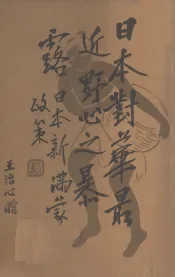 日本對華最
近野心之暴
露 日本新滿蒙
政策
王治心題